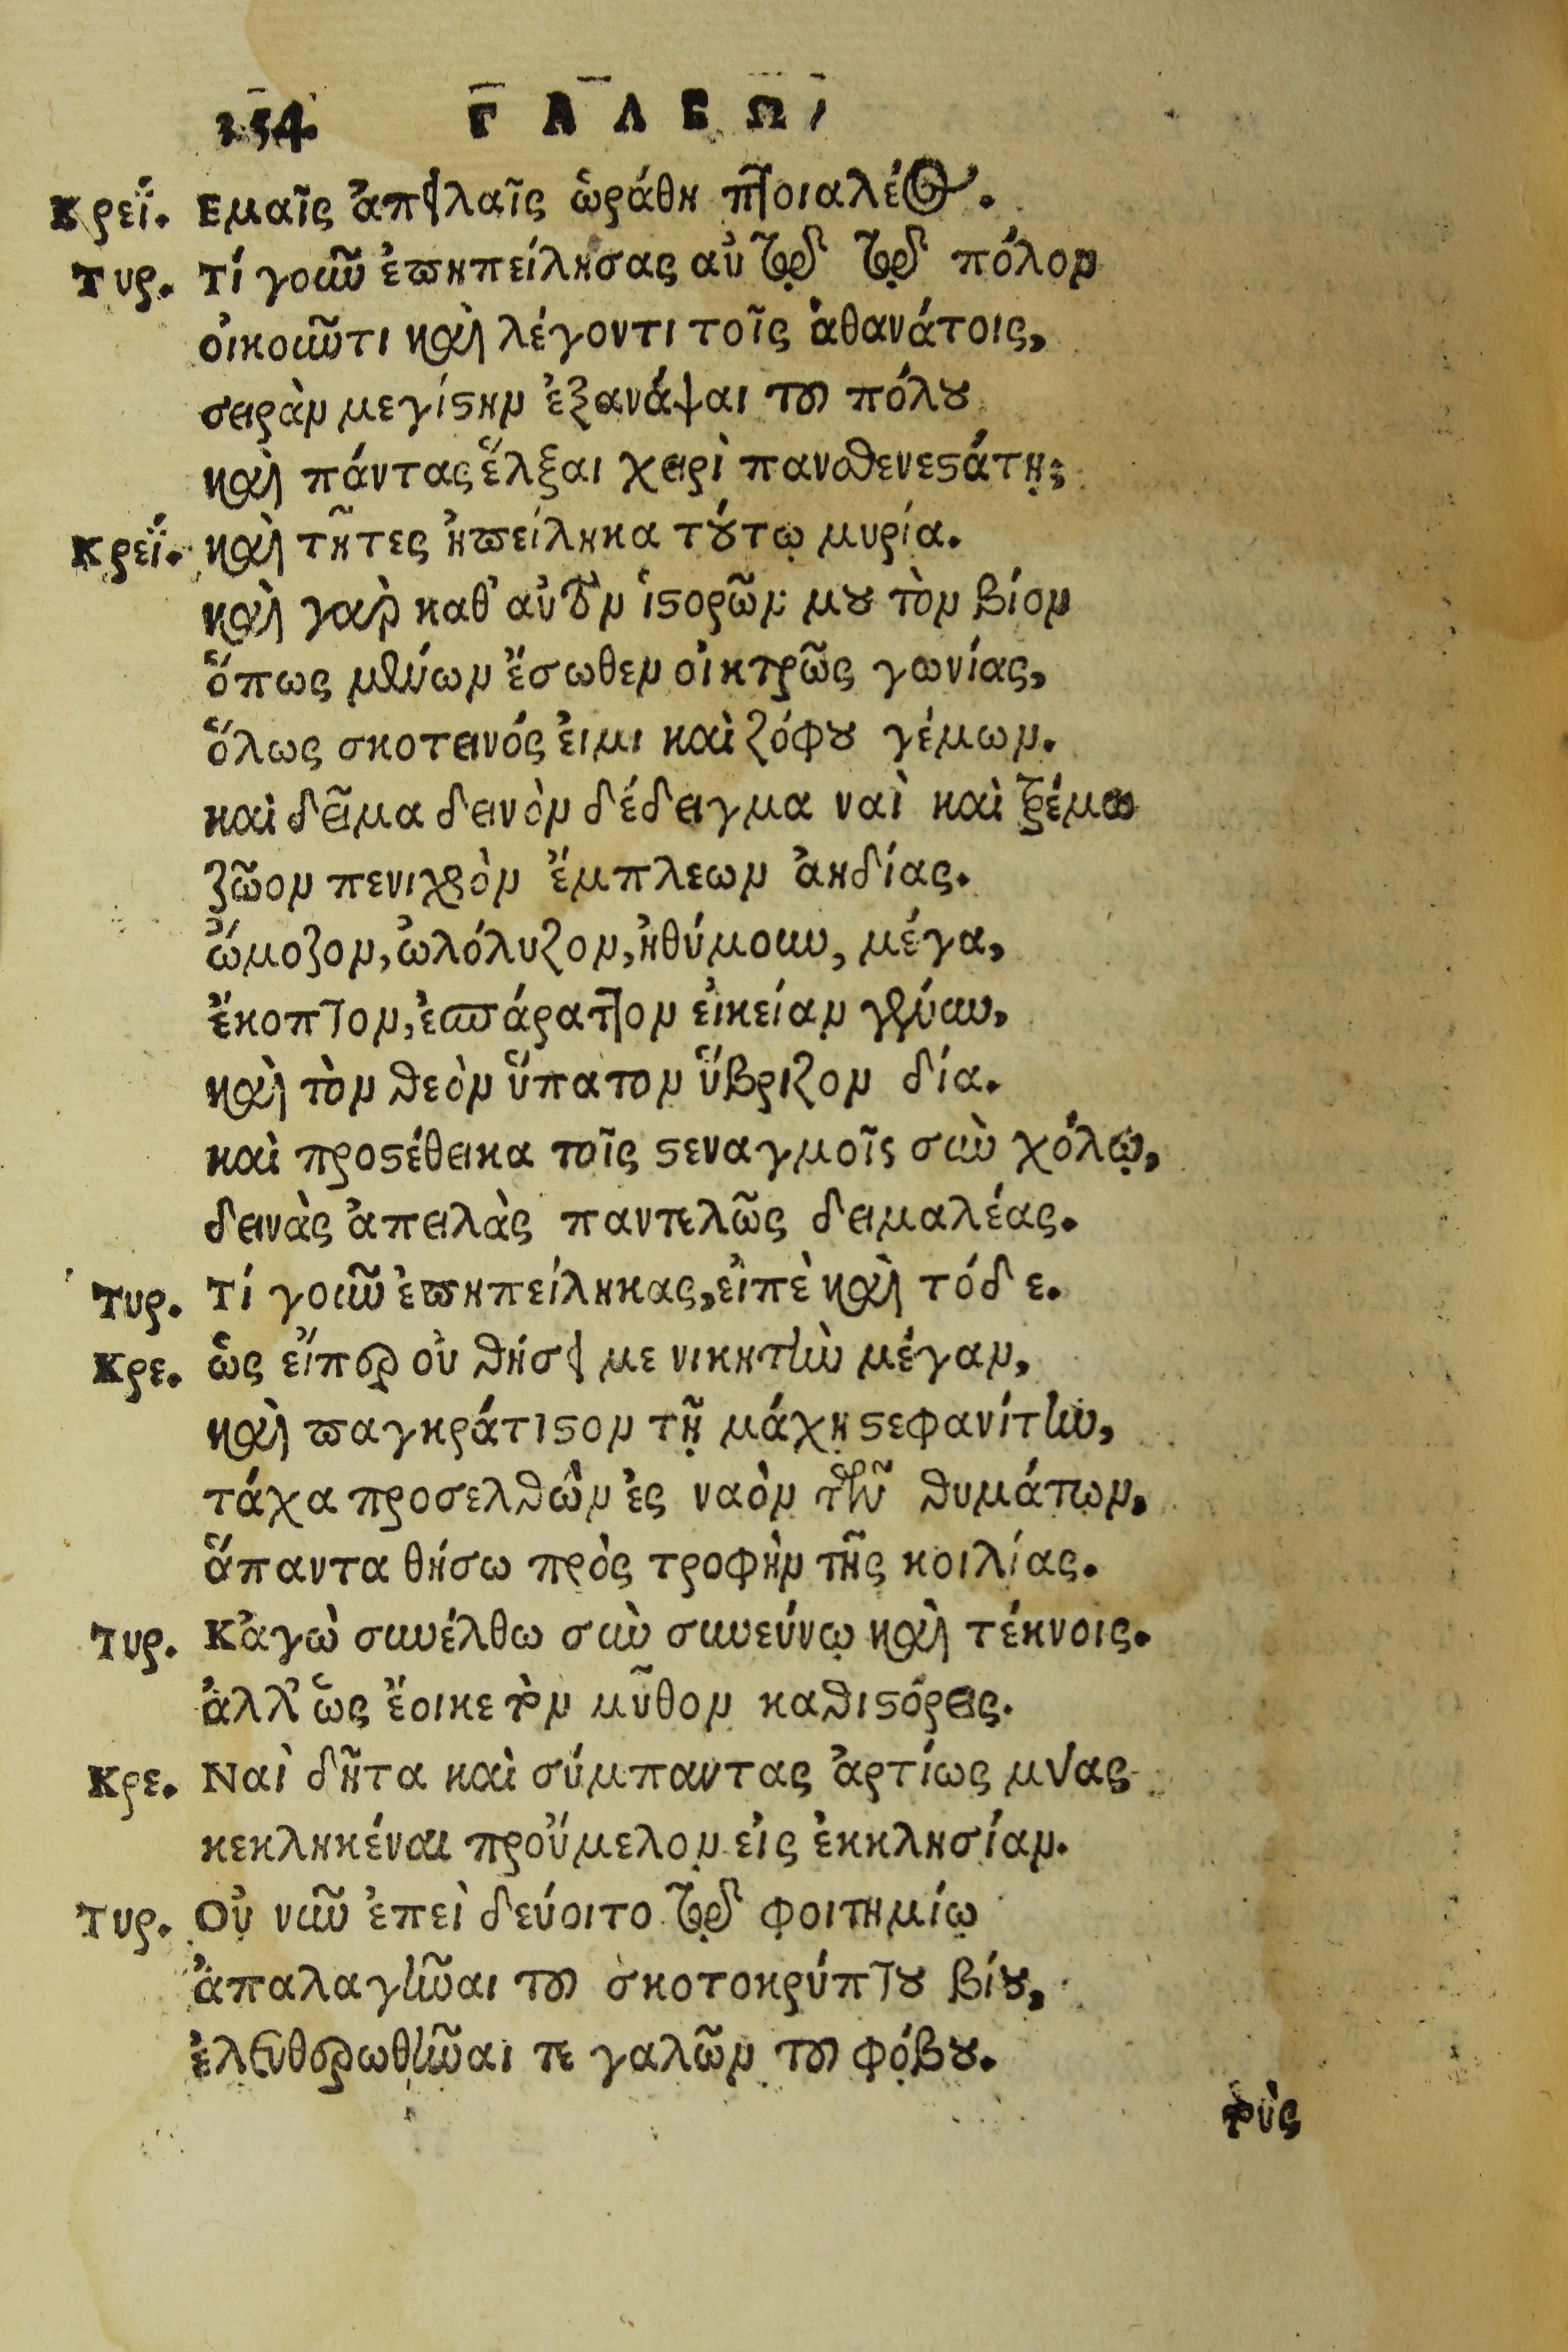 254. ΓΑΛΕΩ
Κρεΐ. Εμαῖς ἀπειλαῖς ὡράθη πτοιαλέος.
Τυρ. Τί γοῦν ἐπηπείλησας αὐτῷ τῷ πόλον
οἰκοῦντι καὶ λέγοντι τοῖς ἀθανάτοις,
σειρὰν μεγίστην ἐξανάψαι τοῦ πόλου
καὶ πάντας ἕλξαι χειρὶ πανσθενεστάτῃ;
Κρεΐ. καὶ τῆτες ἠπείληκα τούτῳ μυρία.
καὶ γὰρ καθ' αὑτὸν ἱστορῶν μου τὸν βίον
ὅπως μένων ἔσωθεν οἰκτρῶς γωνίας,
ὅλως σκοτεινός εἰμι καὶ ζόφου γέμων.
καὶ δεῖμα δεινὸν δέδειγμα ναὶ καὶ τρέμω
ζῶον πενιχρὸν ἔμπλεων ἀηδίας.
ᾤμοζον, ὠλόλυζον, ἠθύμουν, μέγα,
ἔκοπτον, ἐσπάραττον εἰκείαν γένυν,
καὶ τὸν θεὸν ὕπατον ὕβριζον δία.
καὶ προστέθεικα τοῖς στεναγμοῖς σὺν χόλῳ,
δεινὰς ἀπειλὰς παντελῶς δειμαλέας.
Τυρ. Τί γοῦν ἐπηπείληκας, εἰπὲ καὶ τόδε.
Κρε. ὡς εἴπερ οὐ θήσει με νικητὴν μέγαν,
καὶ παγκράτιστον τῇ μάχῃ στεφανίτην,
τάχα προσελθὼν ἐς ναὸν τῶν θυμάτων,
ἅπαντα θήσω πρὸς τροφὴν τῆς κοιλίας.
Τυρ. Κἀγὼ συνέλθω σὺν συνεύνῳ καὶ τέκνοις.
ἀλλ' ὡς ἔοικε τὸν μῦθον καθιστόρεις.
Κρε. Ναὶ δῆτα καὶ σύμπαντας ἀρτίως μύας
κεκληκέναι προὔμελον εἰς ἐκκλησίαν.
Τυρ. Οὐ νῦν ἐπεὶ δεύοιτο τῷ φοιτημίῳ
ἀπαλαγῆναι τοῦ σκοτοκρύπτου βίου,
ἐλευθερωθῆναι τε γαλῶν τοῦ φόβου.
τοὺς